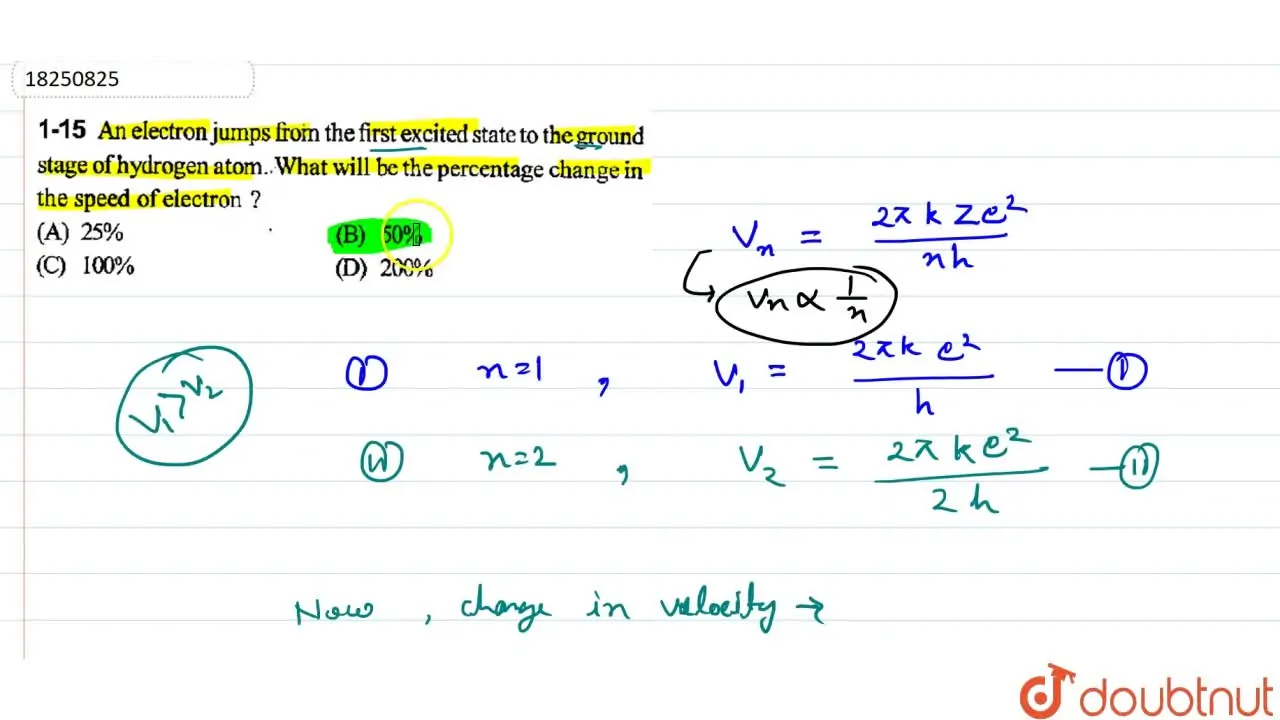 18250825
1-15 An electron jumps from the first excited state to the ground
stage of hydrogen atom. What will be the percentage change in
the speed of electron ?
(A) 25%
(B) 50%
(C) 100%
(D) 200%
Vₙ = 2πkZe² / nh
Vₙ ∝ 1/n
V₁ > V₂
(I) n=1 , V₁ = 2πke² / h —(I)
(II) n=2 , V₂ = 2πke² / 2h —(II)
Now , change in velocity →
doubtnut